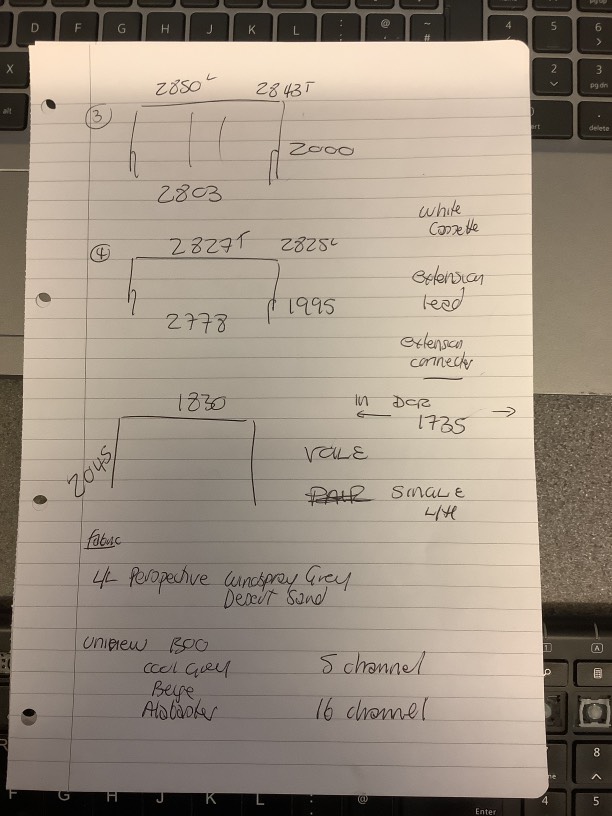 2850 L 2843 T
③
2000
2803
White
Cassette
④
2827 T 2825 L
extension
lead
1995
2778
extension
connector
1830
In DGR
1735
2045
VOLE
PAIR SINGLE
L/H
fabric
4/L Perspective Windspray Grey
Desert Sand
uniview BOO
cool Grey 5 channel
Beige
Alabaster 16 channel